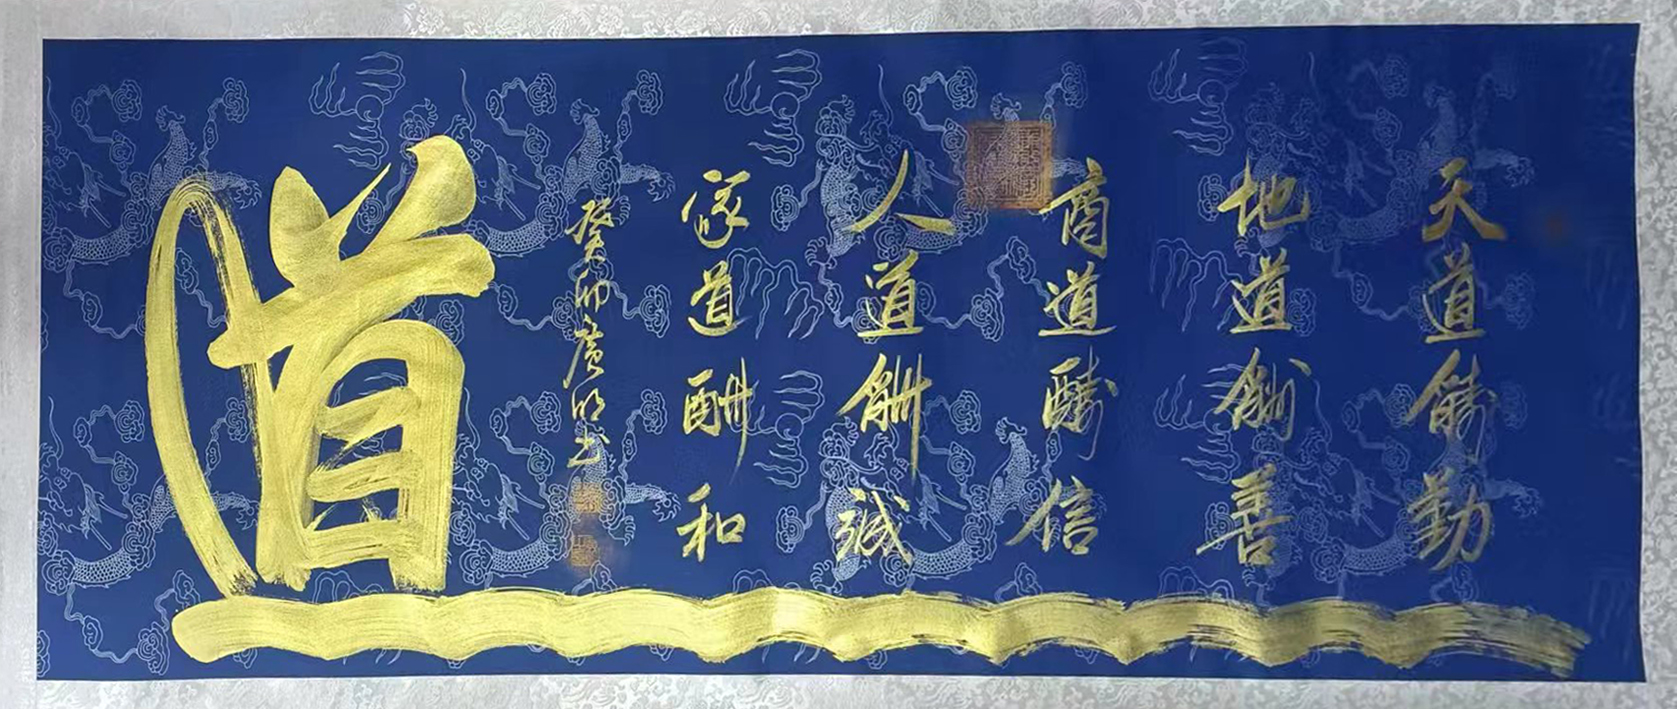 天道酬勤
地道酬善
商道酬信
人道酬诚
家道酬和
癸卯廣明书
道